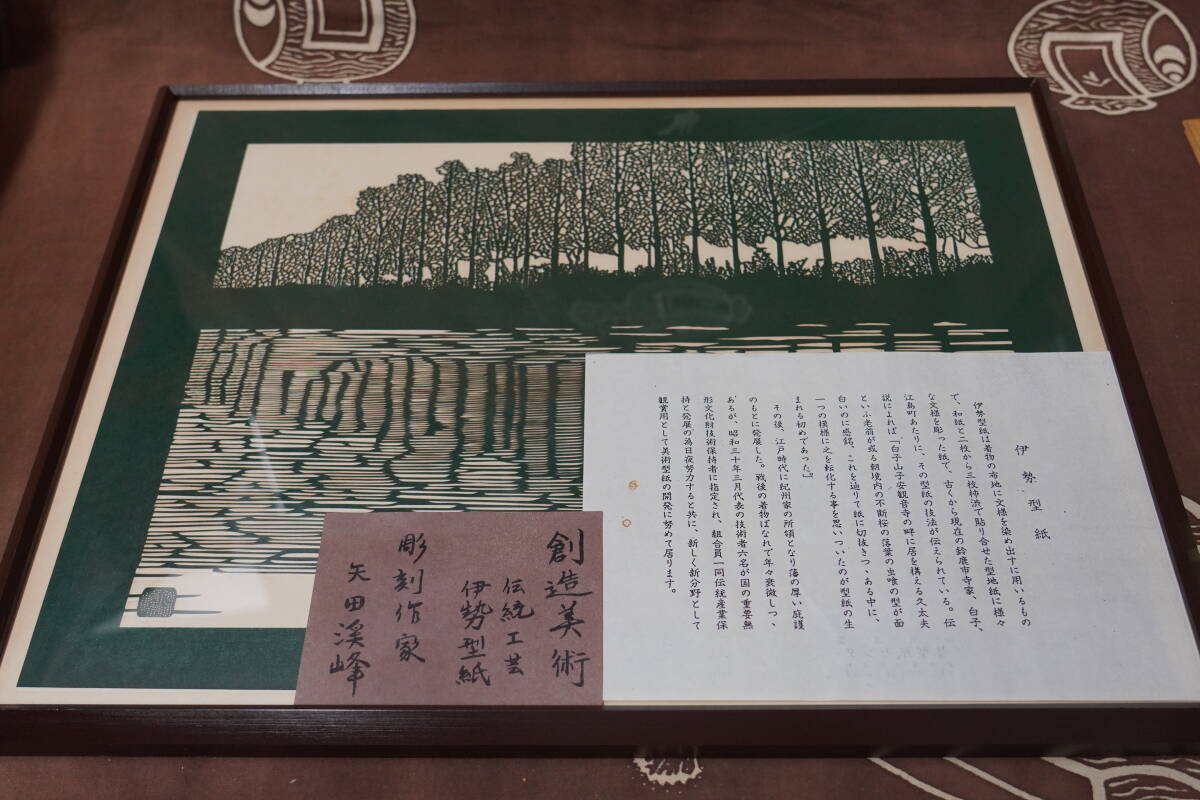 伊勢型紙
伊勢型紙は着物の布地に文様を染め出すに用いるもの
で、和紙と二枚から三枚柿渋で貼り合せた型地紙に様々
な文様を彫った紙で、古くから現在の鈴鹿市寺家、白子、
江島町あたりに、その型紙の技法が伝えられている。伝
説によれば「白子山子安観音寺の畔に居を構える久太夫
といふ老翁が或る朝境内の不断桜の落葉の虫喰の型が面
白いのに感銘、これを辿りて紙に切抜き、ある中に、
一つの模様に之を転化する事を思いついたのが型紙の生
まれる初めであった。』
その後、江戸時代に紀州家の所領となり藩の厚い庇護
のもとに発展した。戦後の着物ばなれで年々衰微しつゝ
あるが、昭和三十年三月代表の技術者六名が国の重要無
形文化財技術保持者に指定され、組合員一同伝統産業保
持と発展の為日夜努力すると共に、新しく新分野として
観賞用として美術型紙の開発に努めて居ります。
創造美術
伝統工芸
伊勢型紙
彫刻作家
矢田溪峰